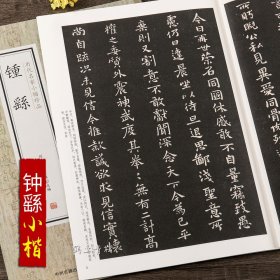 睨公私見
今日再世榮名同國休慼敢不自量竊致愚
慮仍日達晨坐以待旦退思鄙淺聖意所
棄則又割意不敢獻聞深念天下今為已平
權之委質外震神武度其拳拳無有二計高
尚自疏況未見信今推款誠欲求見信實懷
鍾繇
钟繇小楷